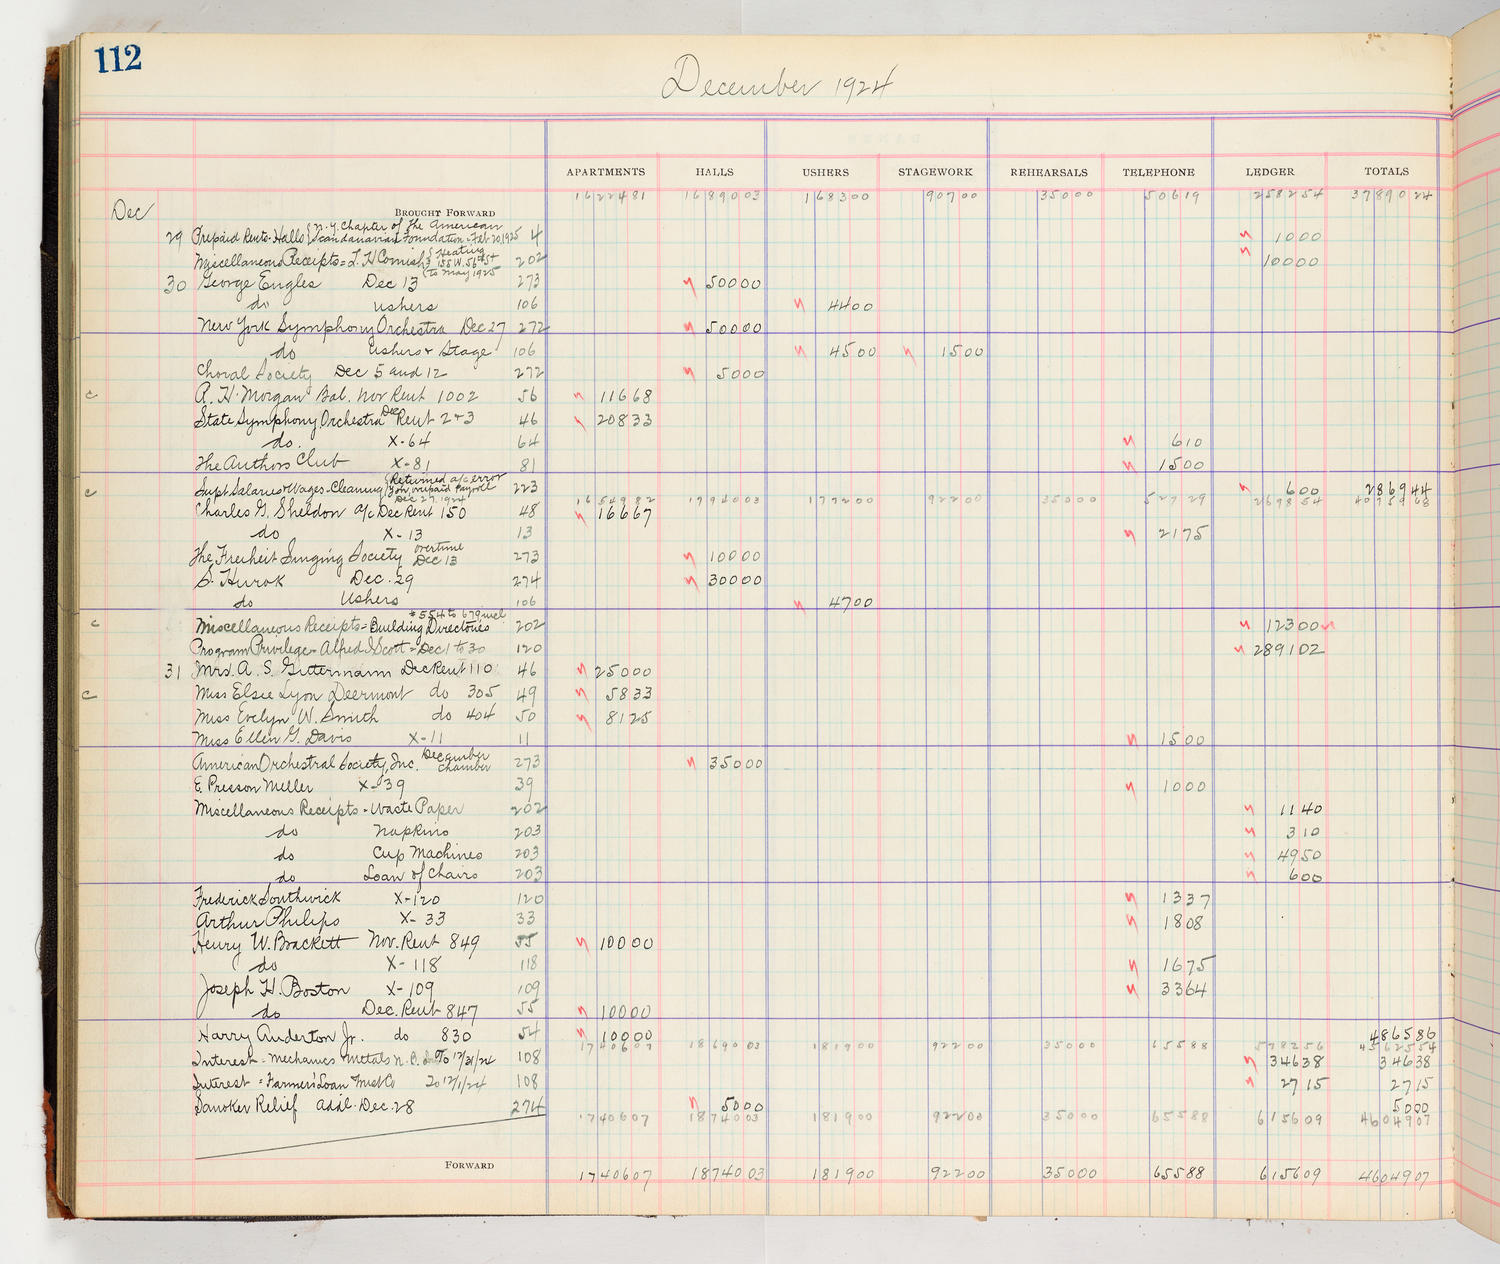 112
December 1924
APARTMENTS HALLS USHERS STAGEWORK REHEARSALS TELEPHONE LEDGER TOTALS
1622481 1689003 168300 90700 35000 50619 258254 3789024
Dec BROUGHT FORWARD
29 Prepaid Rents-Halls { N.Y. Chapter of The American Scandanavian Foundation-Feb 20, 1925 4 1000
Miscellaneous Receipts = L. H Cornish { Heating 155 W. 56th St to May 1925 202 10000
30 George Engles Dec 13 273 50000
do ushers 106 4400
New York Symphony Orchestra Dec 27 272 50000
do Ushers & Stage 106 4500 1500
Choral Society Dec 5 and 12 272 5000
c A. H. Morgan Bal. Nov Rent 1002 56 11668
State Symphony Orchestra Dec Rent 2+3 46 20833
do. X-64 64 610
The Authors Club X-81 81 1500
c Supt Salaries & Wages-Cleaning { Returned a/c error Dec 27, 1924 223 600 286944
1654982 1794003 177200 92200 35000 52729 269854 4075968
Charles G. Sheldon a/c Dec Rent 150 48 16667
do X-13 13 2175
The Freiheit Singing Society overtime Dec 13 273 10000
S. Hurok Dec. 29 274 30000
do Ushers 106 4700
c Miscellaneous Receipts = Building Directories #554 to 679 incl 202 12300
Program Privilege = Alfred J Scott = Dec 1 to 30 120 289102
31 Mrs. A. S. Gittermann Dec Rent 110 46 25000
c Miss Elsie Lyon Deermont do 305 49 5833
Miss Evelyn W. Smith do 404 50 8125
Miss Ellen G. Davis X-11 11 1500
American Orchestral Society, Inc. December chamber 273 35000
E. Presson Miller X-39 39 1000
Miscellaneous Receipts - Waste Paper 202 1140
do Napkins 203 310
do Cup Machines 203 4950
do Loan of Chairs 203 600
Frederick Southwick X-120 120 1337
Arthur Philips X-33 33 1808
Henry W. Brackett Nov. Rent 849 55 10000
do X-118 118 1675
Joseph H. Boston X-109 109 3364
do Dec. Rent 847 55 10000
Harry Anderton Jr. do 830 54 10000 486586
1740607 1869003 181900 92200 35000 65588 578256 4562554
Interest = Mechanics & Metals N. B. To 12/31/24 108 34638 34638
Interest = Farmers' Loan Trust Co To 12/1/24 108 2715 2715
Smoker Relief addl. Dec. 28 274 5000 5000
1740607 1874003 181900 92200 35000 65588 615609 4604907
FORWARD 1740607 1874003 181900 92200 35000 65588 615609 4604907